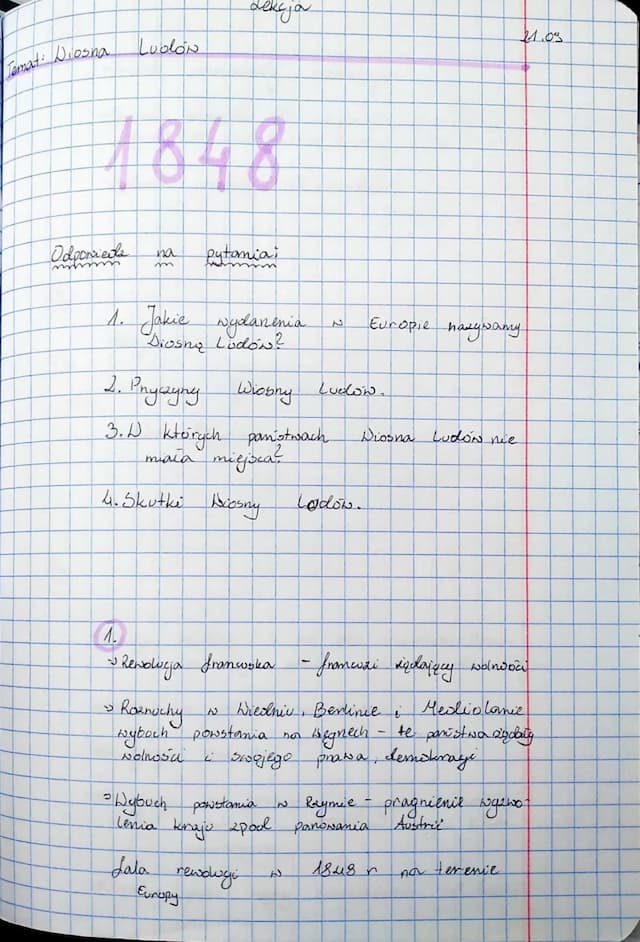 Lekcja
21.03
Temat: Wiosna Ludów
1848
Odpowiedz na pytania:
1. Jakie wydarzenia w Europie nazywamy
Wiosną Ludów?
2. Przyczyny Wiosny Ludów.
3. W których państwach Wiosna Ludów nie
miała miejsca?
4. Skutki Wiosny Ludów.
1.
→ Rewolucja francuska - francuzi żądający wolności
→ Rozruchy w Wiedniu, Berlinie i Mediolanie
wybuch powstania na Węgrzech - te państwa żądały
wolności i swojego prawa, demokracji
→ Wybuch powstania w Rzymie - pragnienie wyzwo-
lenia kraju zpod panowania Austrii
fala rewolucji w 1848 r na terenie
Europy